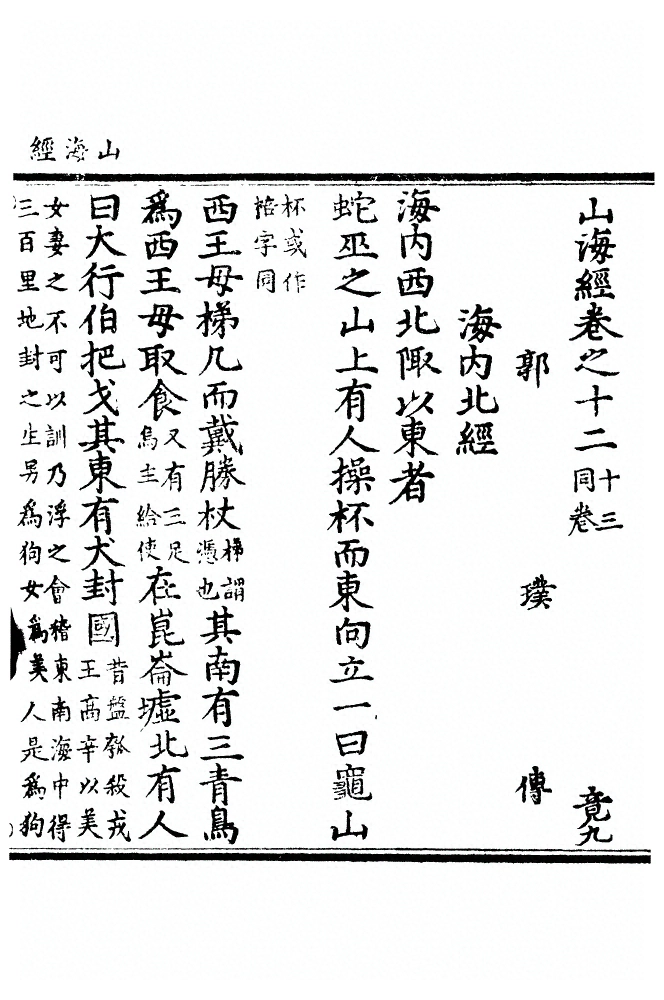 山海經
山海經卷之十二十三同卷 竟九
郭璞傳
海内北經
海内西北陬以東者
蛇巫之山上有人操杯而東向立一曰龜山
杯或作
棓字同
西王母梯几而戴勝杖梯謂憑也其南有三青鳥
爲西王母取食又有三足烏主給使在崑崙墟北有人
曰大行伯把戈其東有犬封國昔盤瓠殺戎王高辛以美
女妻之不可以訓乃浮之會稽東南海中得
三百里地封之生男爲狗女爲美人是爲狗